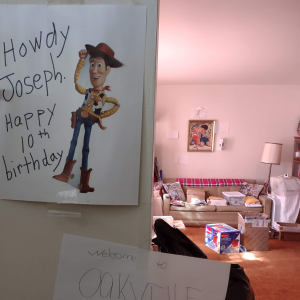 Howdy
Joseph.
Happy
10th
birthday
welcome to
OAKVILLE